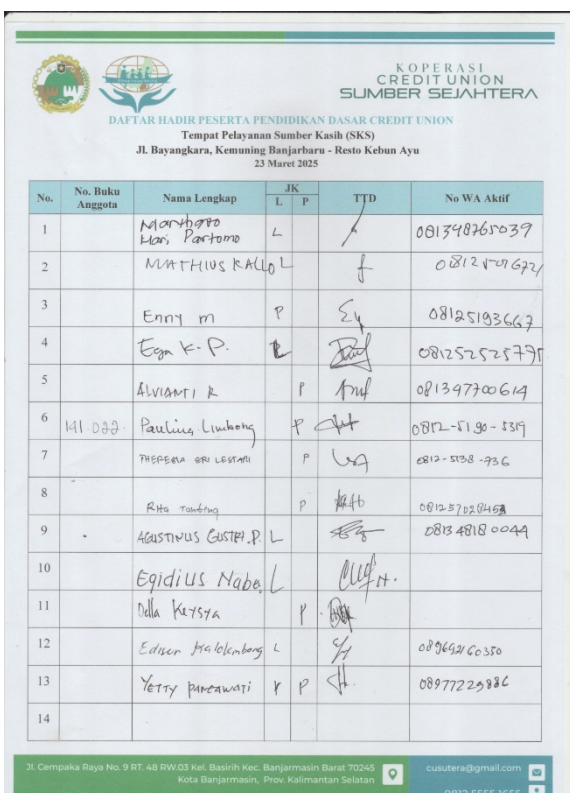 KOPERASI
CREDIT UNION
SUMBER SEJAHTERA
DAFTAR HADIR PESERTA PENDIDIKAN DASAR CREDIT UNION
Tempat Pelayanan Sumber Kasih (SKS)
Jl. Bayangkara, Kemuning Banjarbaru - Resto Kebun Ayu
23 Maret 2025
No. No. Buku Anggota Nama Lengkap JK L P TTD No WA Aktif
1 Hari Partomo L 081348765039
2 MATHIUS KALLO L
3 Enny m P 08125193667
4 K.P. L
5 ALVIANTI R P 081347700614
6 141.022. Paulina Limbong P 0812-5190-5319
7 THERESIA SRI LESTARI P 0812-5138-736
8 Rita P
9 AGUSTINUS L 081348180044
10 Egidius L
11 Della Keysya P
12 L 089692160350
13 YETTY P
14
Jl. Cempaka Raya No. 9 RT. 48 RW.03 Kel. Basirih Kec. Banjarmasin Barat 70245
Kota Banjarmasin, Prov. Kalimantan Selatan
cusutera@gmail.com